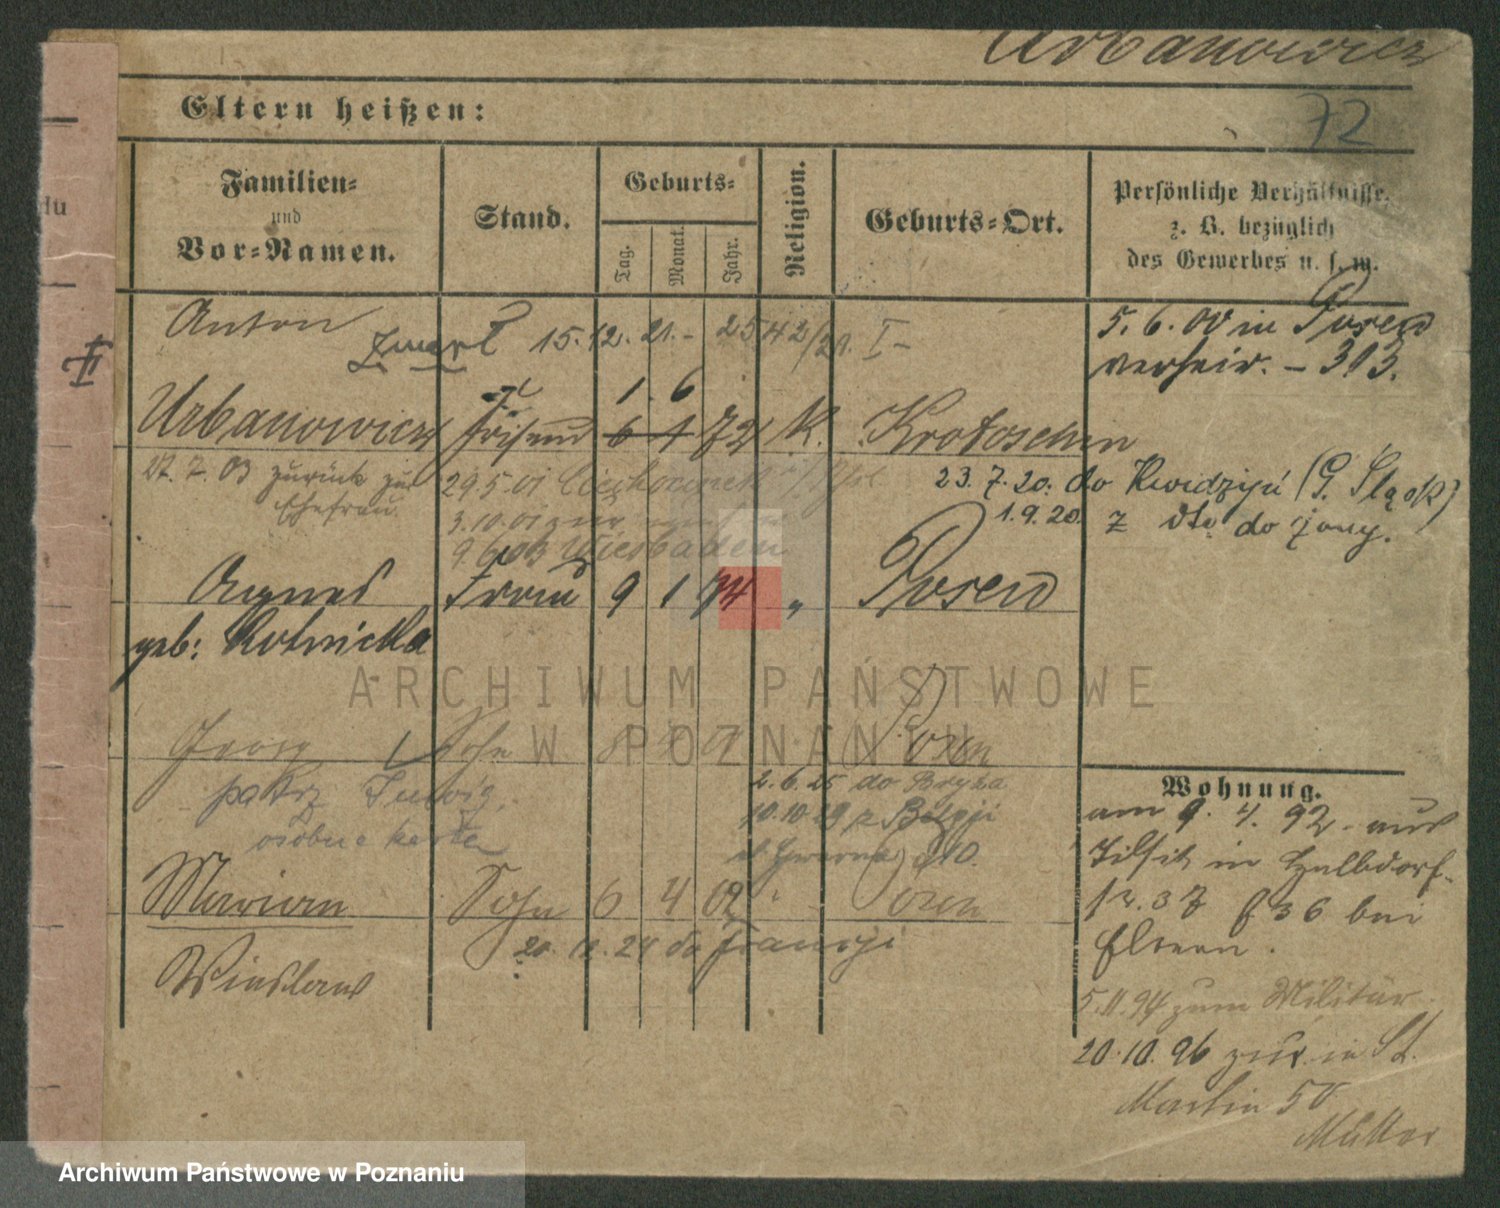 Urbanowicz
72
Eltern heißen:
Familien-
und
Vor-Namen.
Stand.
Geburts-
Tag.
Monat.
Jahr.
Religion.
Geburts-Ort.
Persönliche Verhältnisse.
z. B. bezüglich
des Gewerbes u. s. w.
du
Anton
Zmarł 15.12.21.- 2542/21. I-
5.6.00 in Posen
verheir. - 313.
1. 6
Urbanowicz Friseur 6 1 72 K. Krotoschin
27.7.03 zurück zur
Ehefrau.
29.5.01
23.7.20. do Kwidzyń (G. Śląsk)
3.10.01 zur
1.9.20. z do żony.
9.6.03 Wiesbaden
Agnes Frau 9 1 74 " Posen
geb: Rotnicka
ARCHIWUM PAŃSTWOWE
W POZNANIU
Georg Sohn 8 Posen
patrz Jerzy
osobne karta
2.6.25 do
10.10.29 z Belgji
Marian Sohn 6 4 02 " Posen
20.12.24 do Francji
Wieslaus
Wohnung.
am 9.4.92 aus
Tilsit in Halbdorf-
str. 37 b 36 bei
Eltern.
5.11.94 zum Militär.
20.10.96 zur. in St.
Martin 50
Mutter
Archiwum Państwowe w Poznaniu